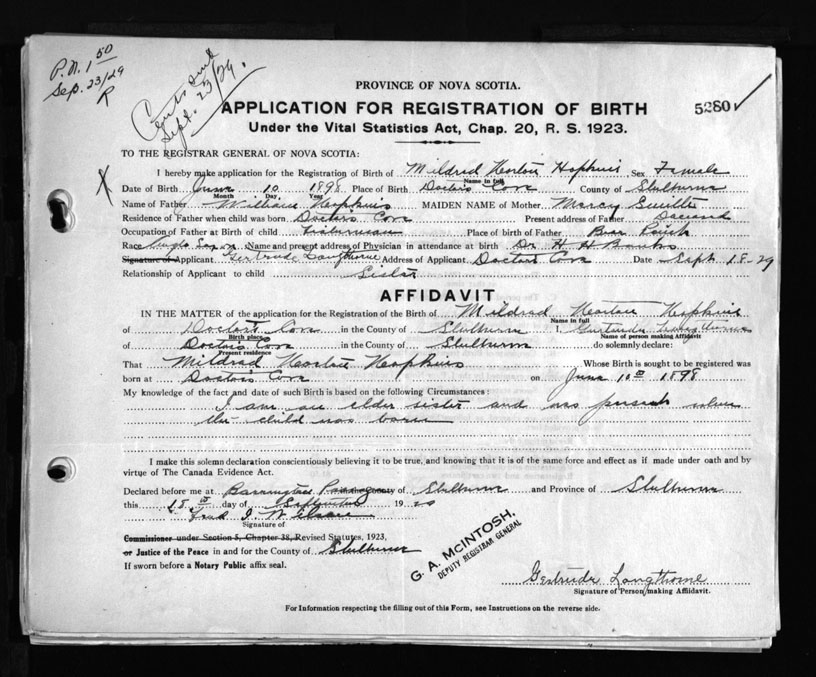 P.N. 1 50
Sep. 23/29
R
Sept. 23/29.
PROVINCE OF NOVA SCOTIA.
APPLICATION FOR REGISTRATION OF BIRTH
5280 ✓
Under the Vital Statistics Act, Chap. 20, R. S. 1923.
TO THE REGISTRAR GENERAL OF NOVA SCOTIA:
I hereby make application for the Registration of Birth of Mildred Horton Hopkins Sex Female
Name in full
X Date of Birth June 10 1898 Place of Birth Doctors Cove County of Shelburne
Month Day Year
Name of Father William Hopkins MAIDEN NAME of Mother Mercy
Residence of Father when child was born Doctors Cove Present address of Father Deceased
Occupation of Father at Birth of child Fisherman Place of birth of Father Bear Point
Race Anglo Saxon Name and present address of Physician in attendance at birth Dr. H H Banks
Signature of Applicant Gertrude Longthorne Address of Applicant Doctors Cove Date Sept 18-29
Relationship of Applicant to child Sister
AFFIDAVIT
IN THE MATTER of the application for the Registration of the Birth of Mildred Horton Hopkins
Name in full
of Doctors Cove in the County of Shelburne I, Gertrude Longthorne
Birth place Name of person making Affidavit
of Doctors Cove in the County of Shelburne do solemnly declare:
Present residence
That Mildred Horton Hopkins Whose Birth is sought to be registered was
born at Doctors Cove on June 10th 1898
My knowledge of the fact and date of such Birth is based on the following Circumstances:
I am an elder sister and was present when
the child was born
I make this solemn declaration conscientiously believing it to be true, and knowing that it is of the same force and effect as if made under oath and by
virtue of The Canada Evidence Act.
Declared before me at Barrington Passage County of Shelburne and Province of Shelburne
this 18th day of September 19
Fred I.
Signature of
Commissioner under Section 5, Chapter 38, Revised Statutes, 1923,
or Justice of the Peace in and for the County of Shelburne
If sworn before a Notary Public affix seal.
G. A. McINTOSH,
DEPUTY REGISTRAR GENERAL
Gertrude Longthorne
Signature of Person making Affidavit.
For Information respecting the filling out of this Form, see Instructions on the reverse side.